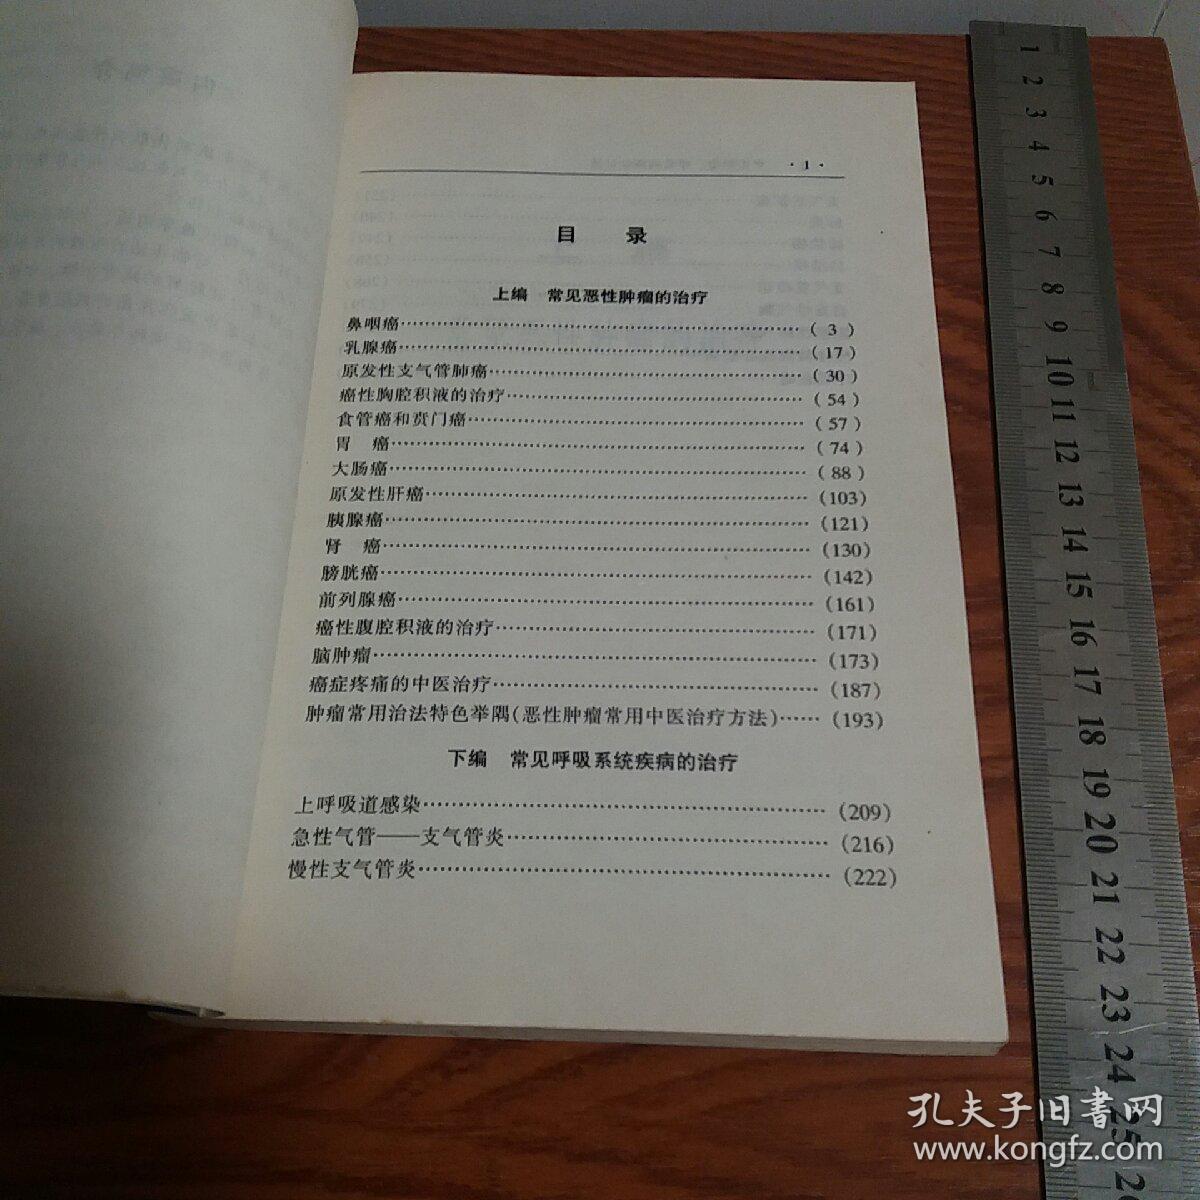 · 1 ·
目 录
上编 常见恶性肿瘤的治疗
鼻咽癌……………………………………( 3 )
乳腺癌……………………………………( 17 )
原发性支气管肺癌………………………( 30 )
癌性胸腔积液的治疗……………………( 54 )
食管癌和贲门癌…………………………( 57 )
胃 癌……………………………………( 74 )
大肠癌……………………………………( 88 )
原发性肝癌………………………………(103)
胰腺癌……………………………………(121)
肾 癌……………………………………(130)
膀胱癌……………………………………(142)
前列腺癌…………………………………(161)
癌性腹腔积液的治疗……………………(171)
脑肿瘤……………………………………(173)
癌症疼痛的中医治疗……………………(187)
肿瘤常用治法特色举隅(恶性肿瘤常用中医治疗方法)……(193)
下编 常见呼吸系统疾病的治疗
上呼吸道感染……………………………(209)
急性气管——支气管炎…………………(216)
慢性支气管炎……………………………(222)
1
2
3
4
5
6
7
8
9
10
11
12
13
14
15
16
17
18
19
20
21
22
23
24
25
孔夫子旧书网
www.kongfz.com